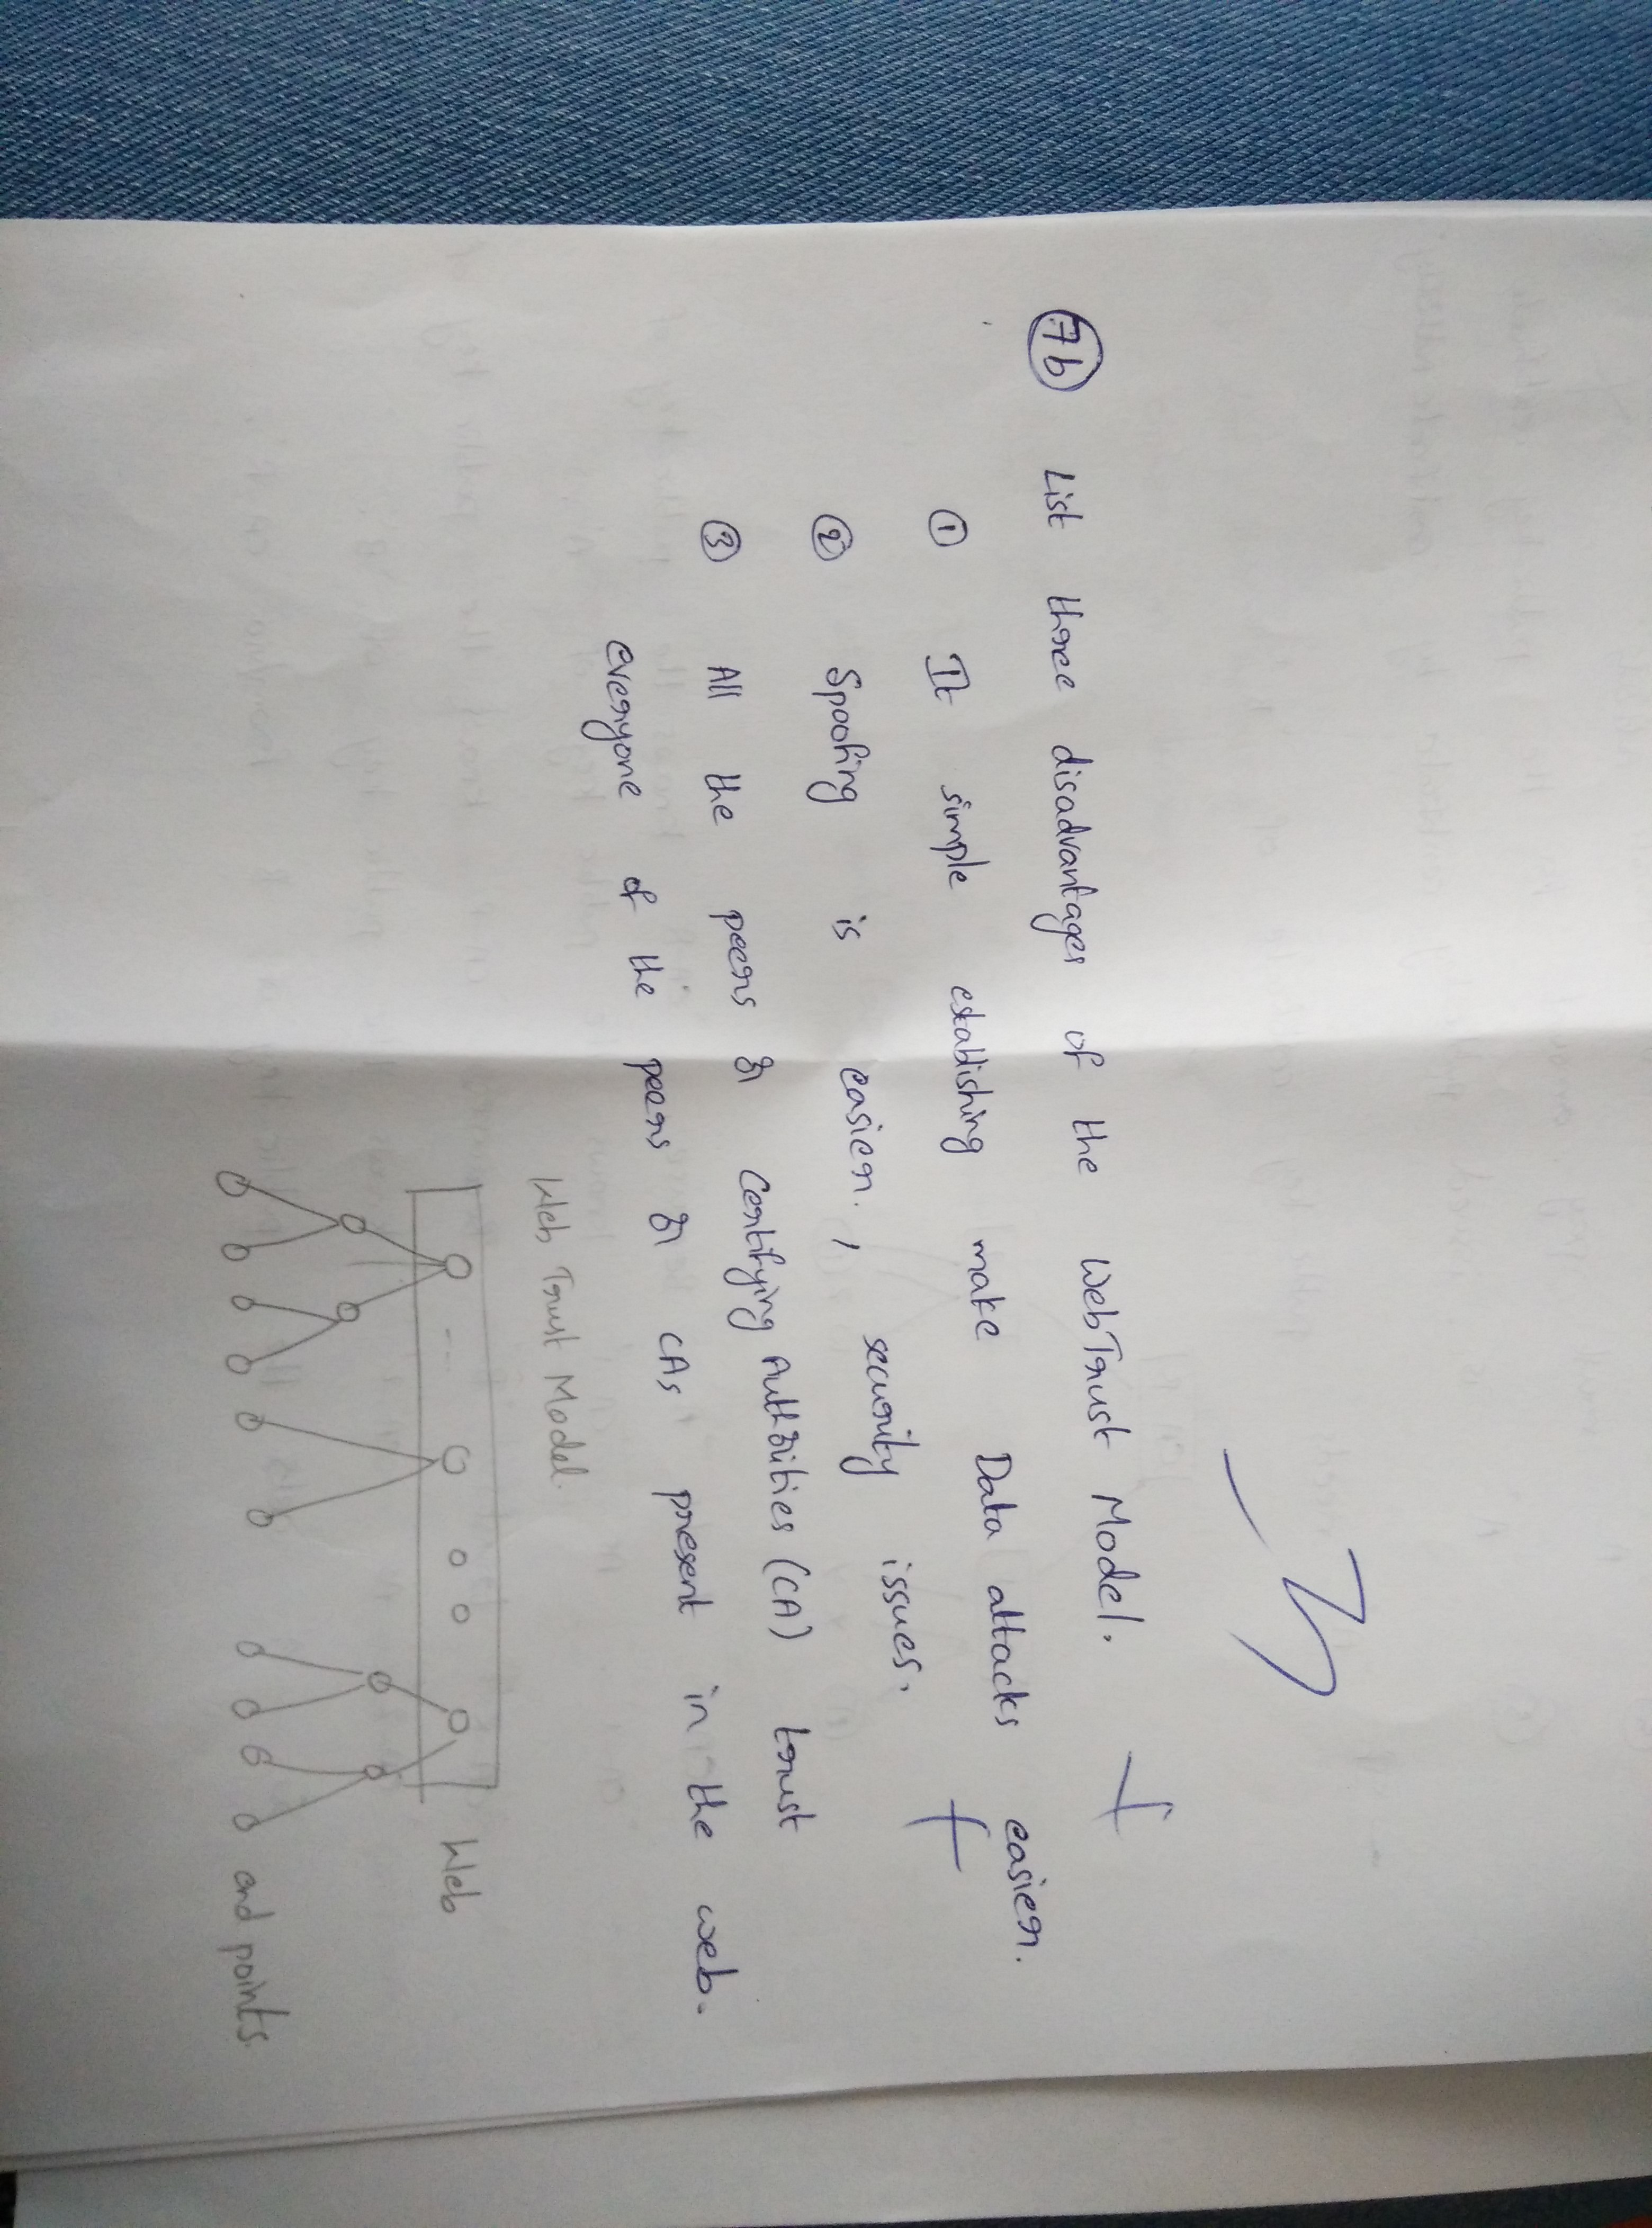 7b List three disadvantages of the WebTrust Model.
① It simple establishing make Data attacks easier.
② Spoofing is easier., security issues.
③ All the peers or Certifying Authorities (CA) trust
everyone of the peers or CAs present in the web.
Web Trust Model.
Web
end points.